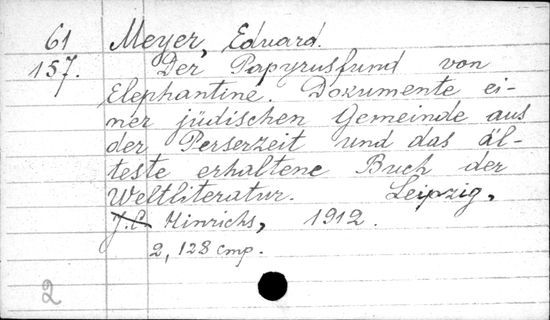 61 Meyer, Eduard.
157. Der Papyrusfund von
Elephantine. Dokumente ei-
ner jüdischen Gemeinde aus
der Perserzeit und das äl-
teste erhaltene Buch der
Weltliteratur. Leipzig,
J.C. Hinrichs, 1912.
2, 128 стр.
2